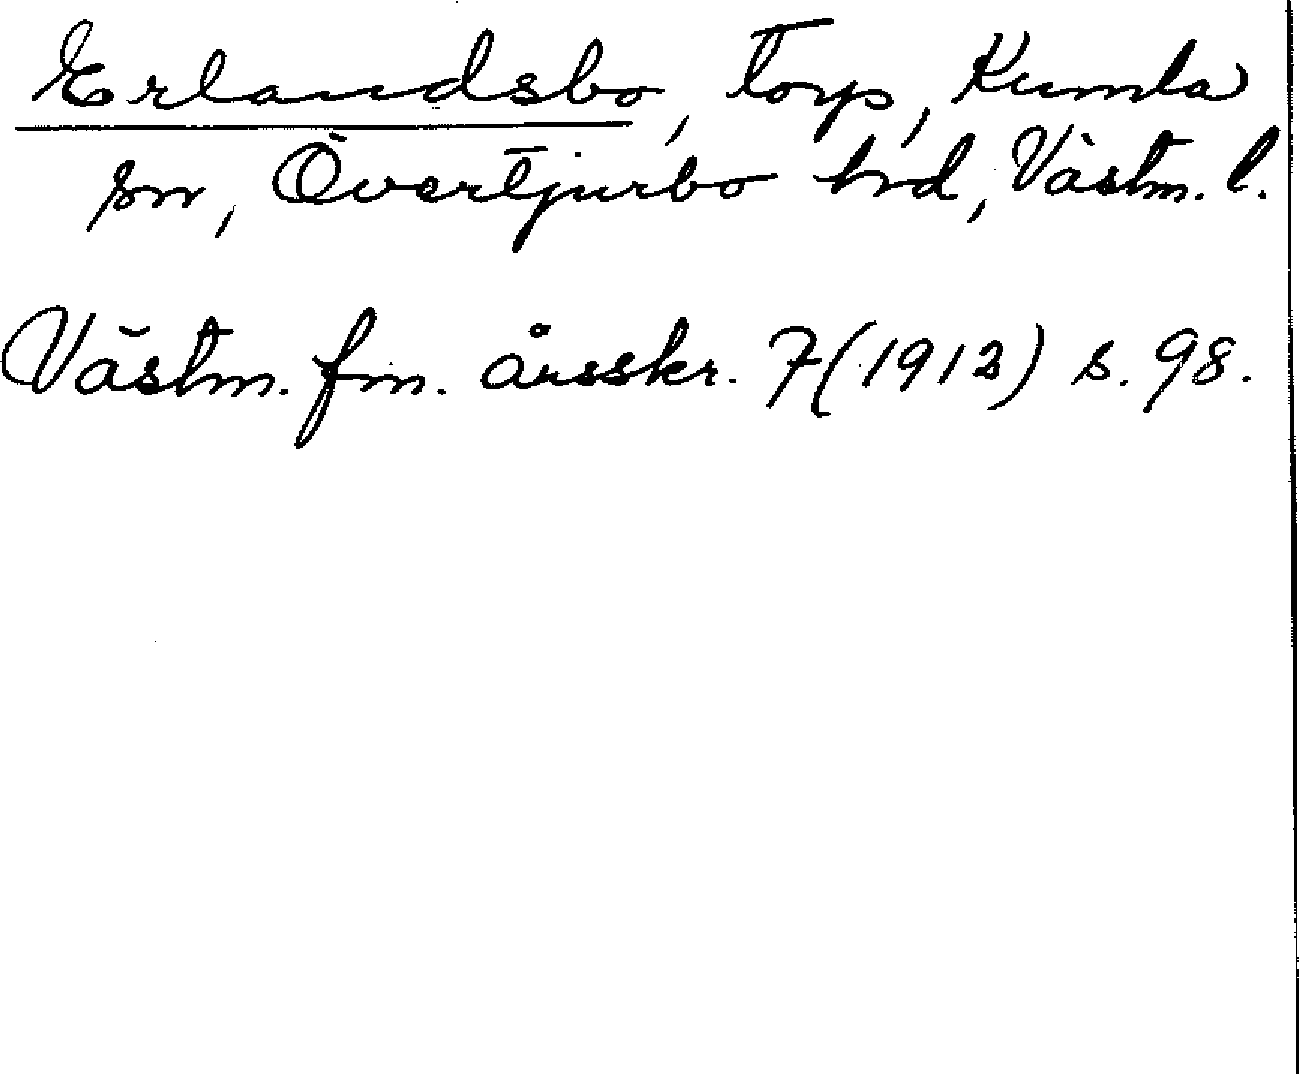 Erlandsbo, torp, Kumla
sn, Övertjurbo hd, Västm. l.
Västm. fm. årsskr. 7(1913) s. 98.